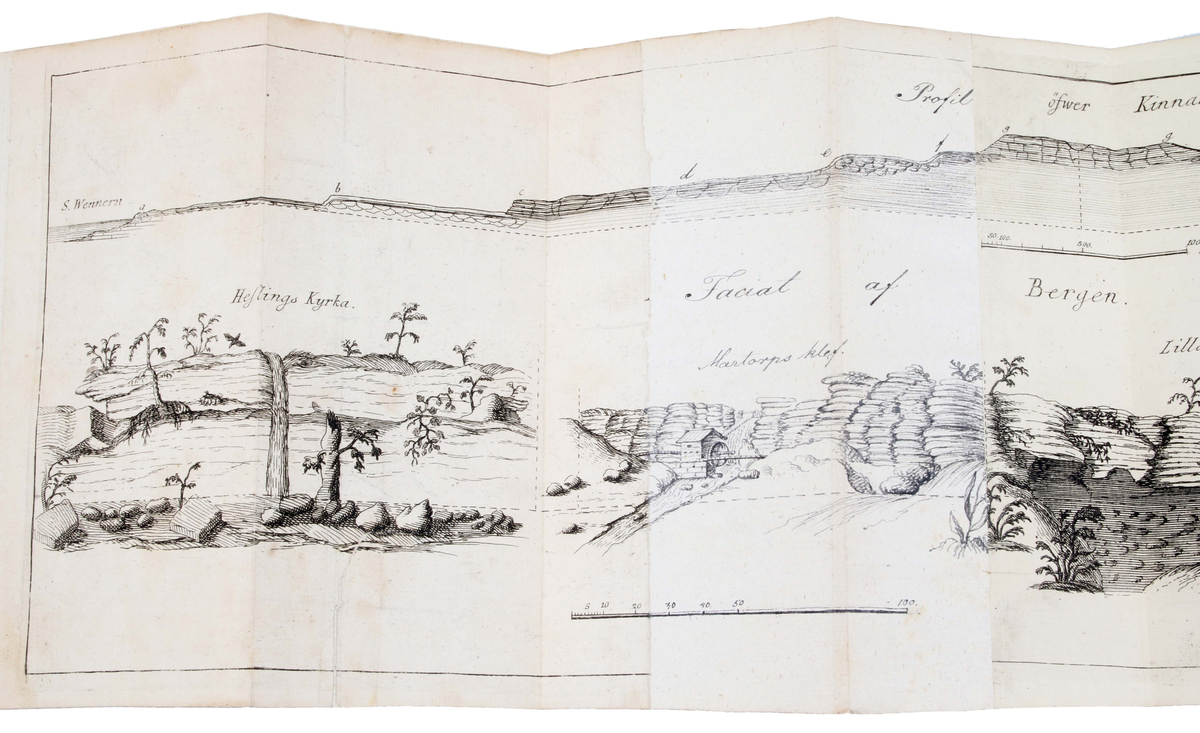 Profil öfwer Kinna
S. Wennern
a b c d e f g g
50. 100. 500. 100
Facial af Bergen.
Heſlings Kyrka.
Martorps klef.
Lill
5 10 20 30 40 50 100.